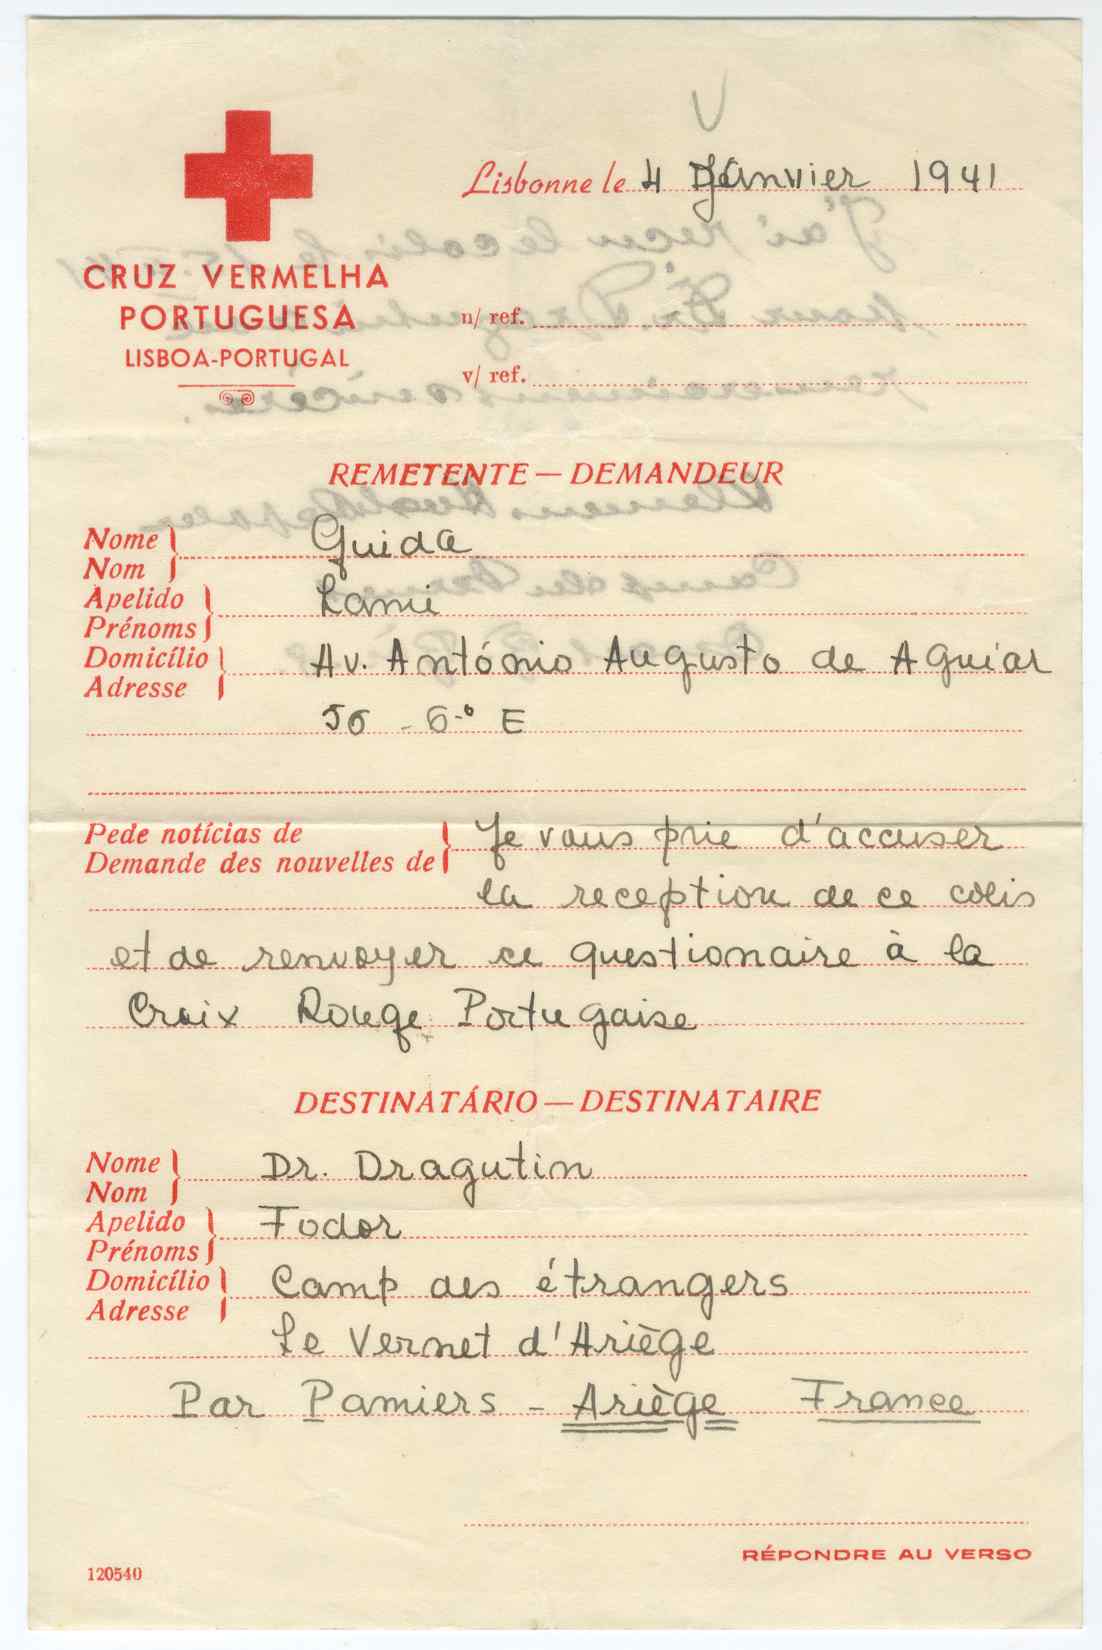 V
Lisbonne le 4 Janvier 1941
CRUZ VERMELHA
PORTUGUESA
LISBOA-PORTUGAL
n/ ref.
v/ ref.
J'ai reçu le colis le
pour Dr.
REMETENTE — DEMANDEUR
Nome
Nom
Guida
Apelido
Prénoms
Lami
Domicílio
Adresse
Av. António Augusto de Aguiar
56 - 6.º E
Pede notícias de
Demande des nouvelles de
Je vous prie d'accuser
la reception de ce colis
et de renvoyer ce questionaire à la
Croix Rouge Portugaise
DESTINATÁRIO — DESTINATAIRE
Nome
Nom
Dr. Dragutin
Apelido
Prénoms
Fodor
Domicílio
Adresse
Camp des étrangers
Le Vernet d'Ariège
Par Pamiers - Ariège France
RÉPONDRE AU VERSO
120540